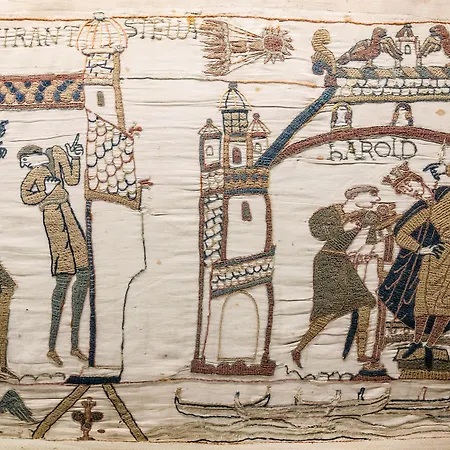 MIRANT STELLA
HAROLD